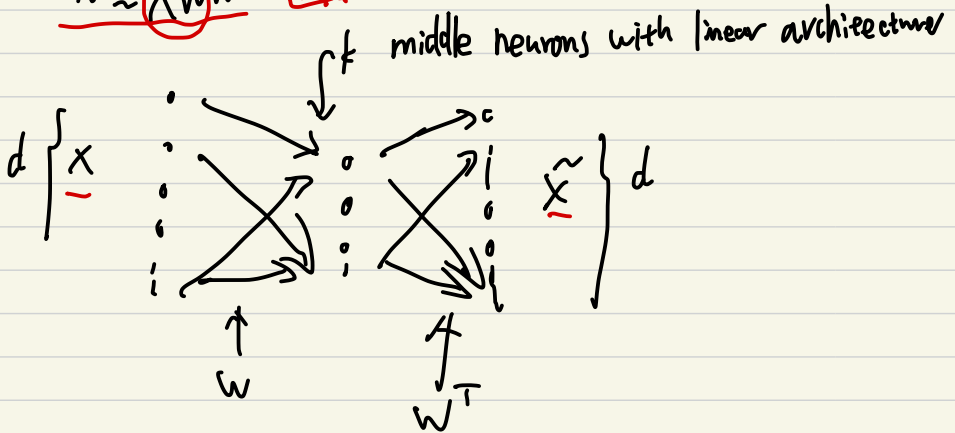 k middle neurons with linear architecture
d
x
x̃
d
W
Wᵀ